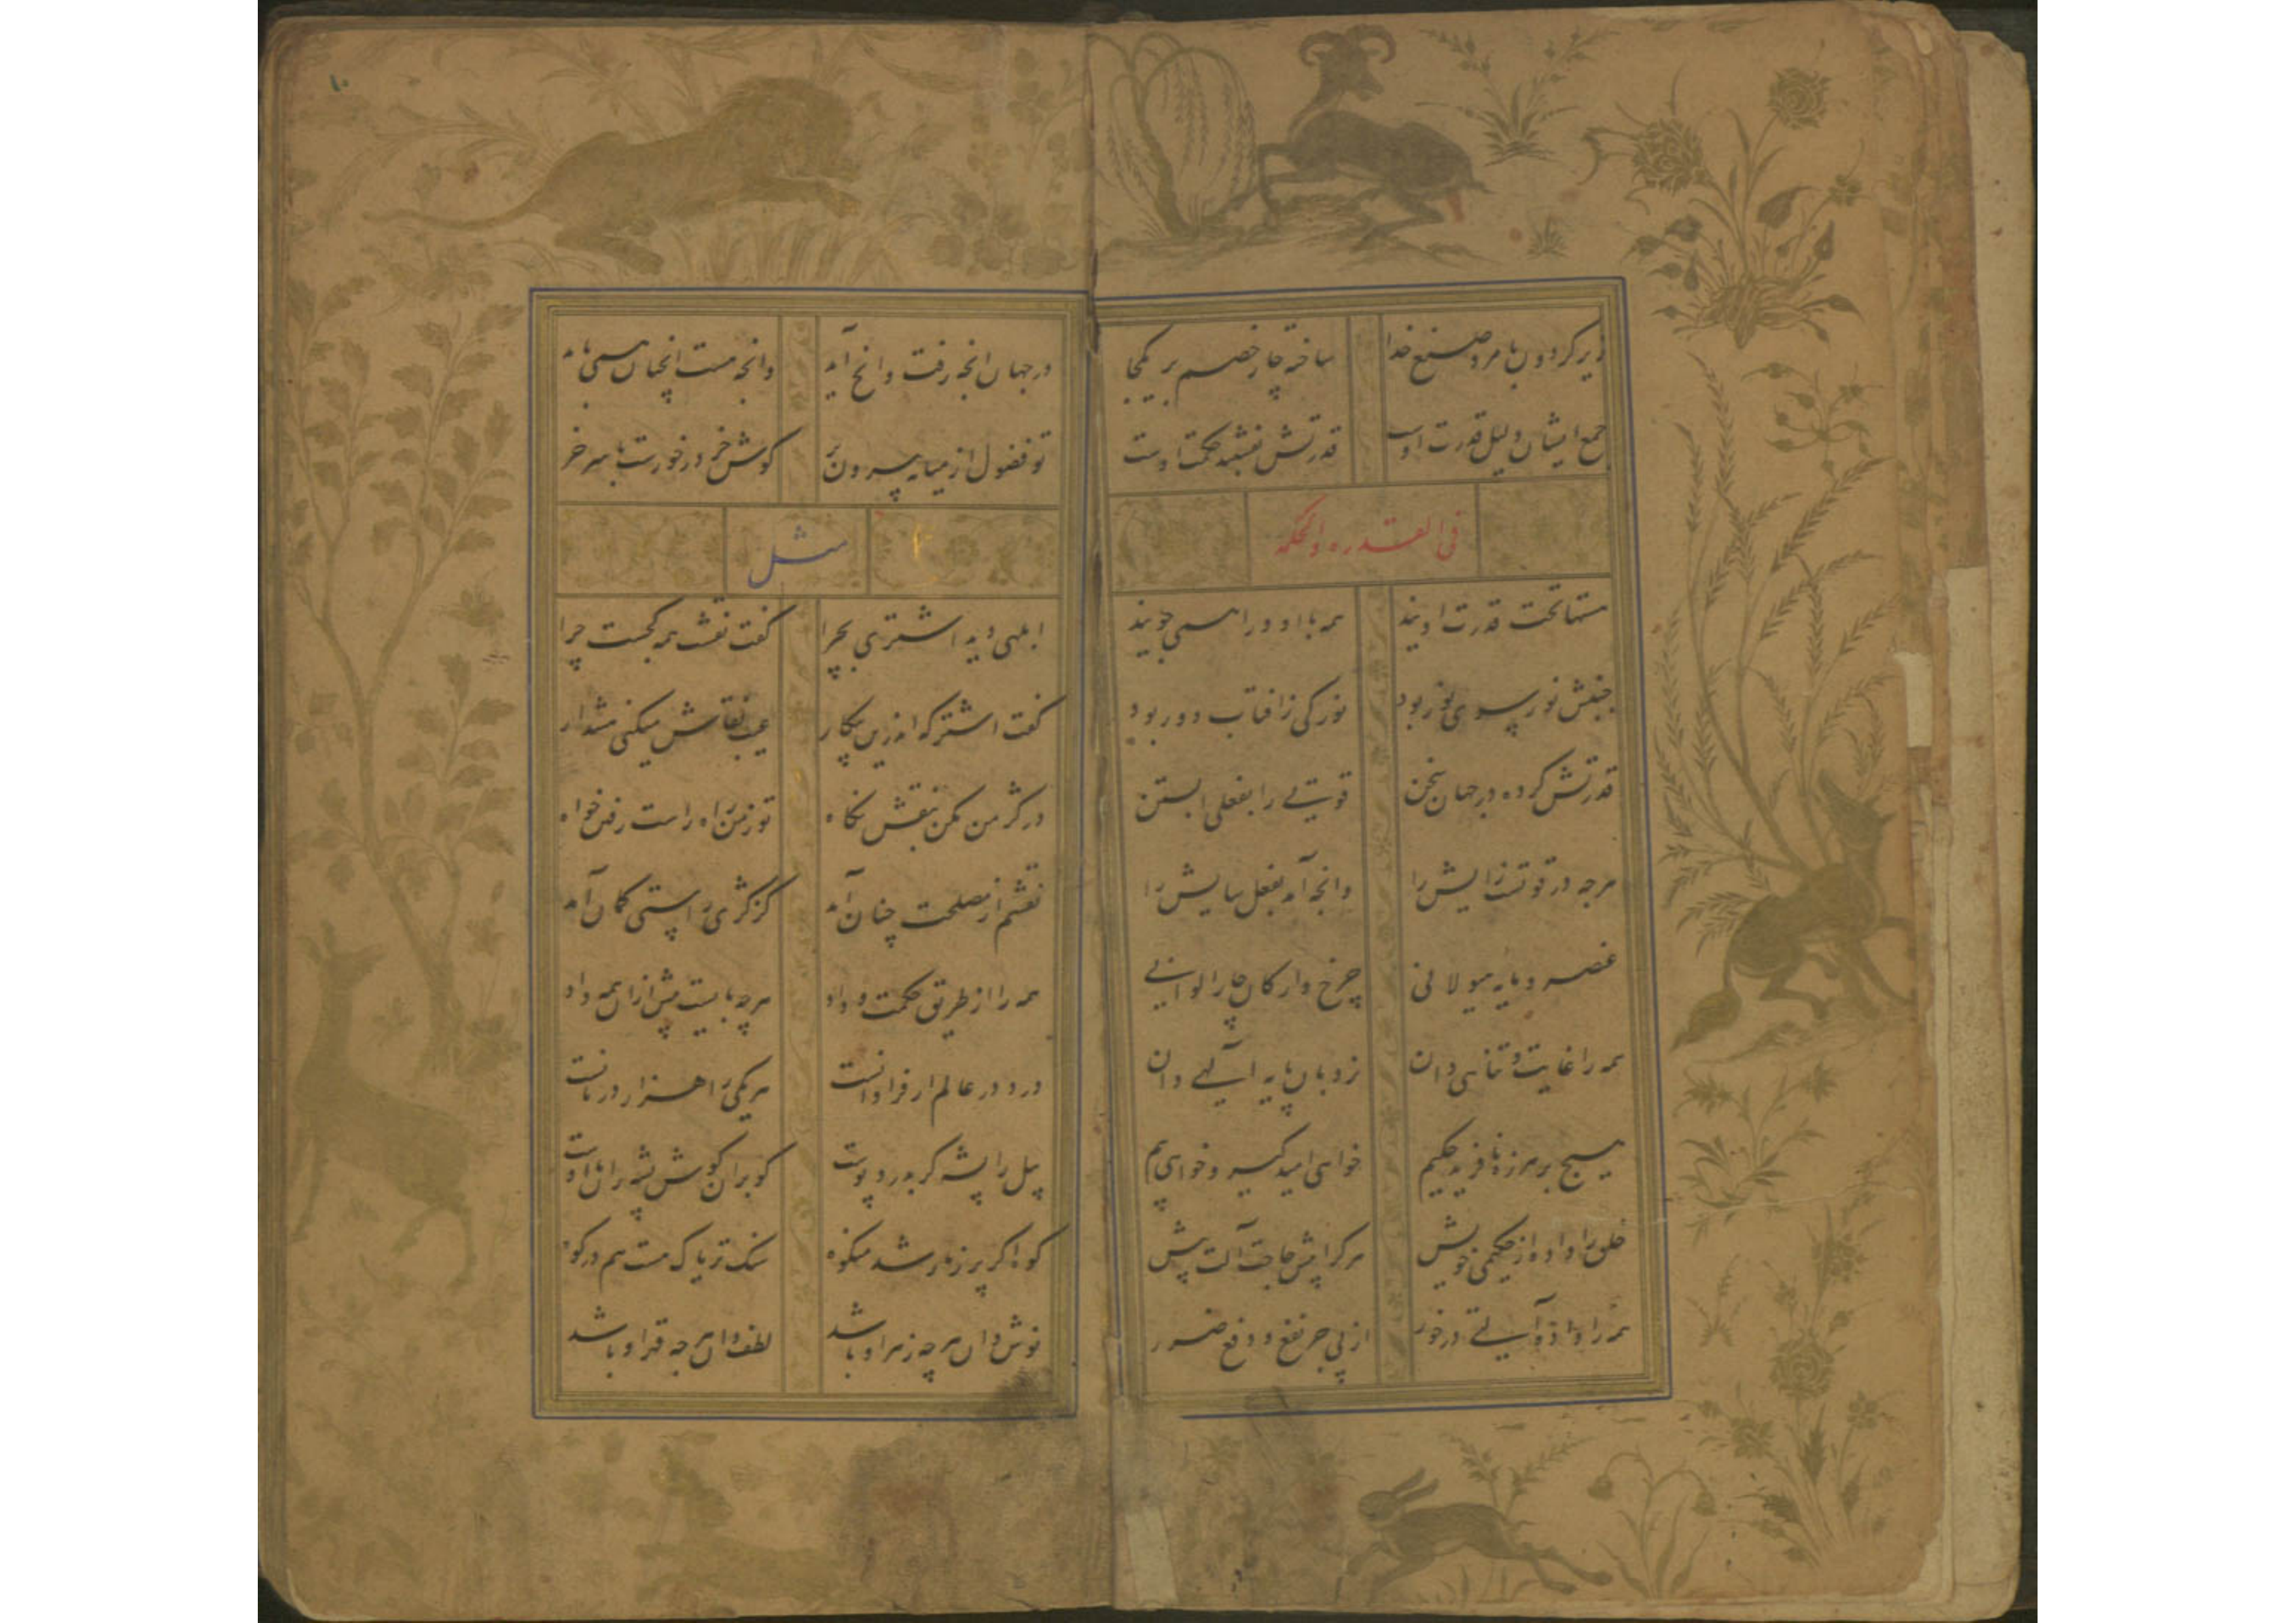 زیر کردون بامر و صنع خدا ساخته چار خصم بر یکجا
جمع ایشان دلیل قدرت اوست قدرتش نقشبند حکمت اوست
فی القدره والحکمه
منتها تحت قدرت اویند همه با او و اورا همی جویند
جنبش نور سوی نور بود نور کی ز افتاب دور بود
قدرتش کرده در جهان سخن قوتی را بفعلی ابستن
هرچه در قوتست زایش را وانچه آمد بفعل سایش را
عنصر و مایه هیولانی چرخ وارکان چار الوانی
همه را غایت و تناهی دان نردبان پایه آلهی دان
هیچ بر هرزه نافرید حکیم خواهی امید کیر و خواهی بیم
خلق را داده از حکیمی خویش هرکرا پیش حاجت آلت پیش
همه را داده آلتی درخور از پی جر نفع و دفع ضرر
۱۰
درجهان انچه رفت وانچ آید وانچه هست انچنان همی باید
تو فضول از میانه بیرون بر کوش خر درخورست با سر خر
مثل
ابلهی دید اشتری بچرا کفت نقشت همه کجست چرا
کفت اشتر که اندرین پیکار عیب نقاش میکنی هشدار
در کژ من مکن بنقش نکاه تو ز من راه راست رفتن خواه
نقشم از مصلحت چنان آمد کز کژی راستی کمان آمد
همه را از طریق حکمت و داد هرچه بایست بیش ازان همه داد
درد در عالم ار فراوانست هر یکی را هزار درمانست
پیل را پشه کر بدرد پوست کو بران کوش پشه ران با اوست
کوه اکر پر ز مار شد مشکوه سنک تریاک هست هم در کوه
نوش دان هرچه زهر او باشد لطف دان هرچه قهر او باشد